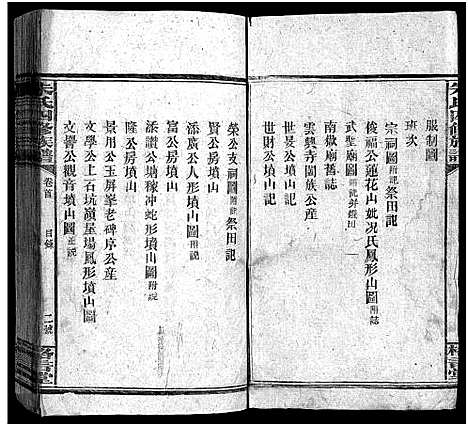 服制圖
班次
宗祠圖 附記 祭田記
俊福公蓮花山妣况氏鳳形山圖 附誌
武聖廟圖 附記
南嶽廟舊誌
雲興寺闔族公產
世景公墳山記
世財公墳山記
榮公支祠圖 附記 祭田記
賢公房墳山
添廣公人形墳山圖 附誌
富公房墳山
添讚公塘稼冲蛇形墳山圖 附說
隆公房墳山
景用公玉屏峯老碑序公產
文學公上石坑嶺呈塲鳳形墳山圖
文譽公觀音墳山圖 附說
朱氏四修族譜
卷首
目錄
二號